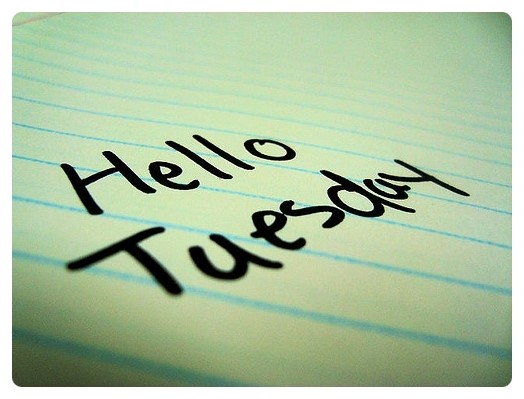 Hello
Tuesday